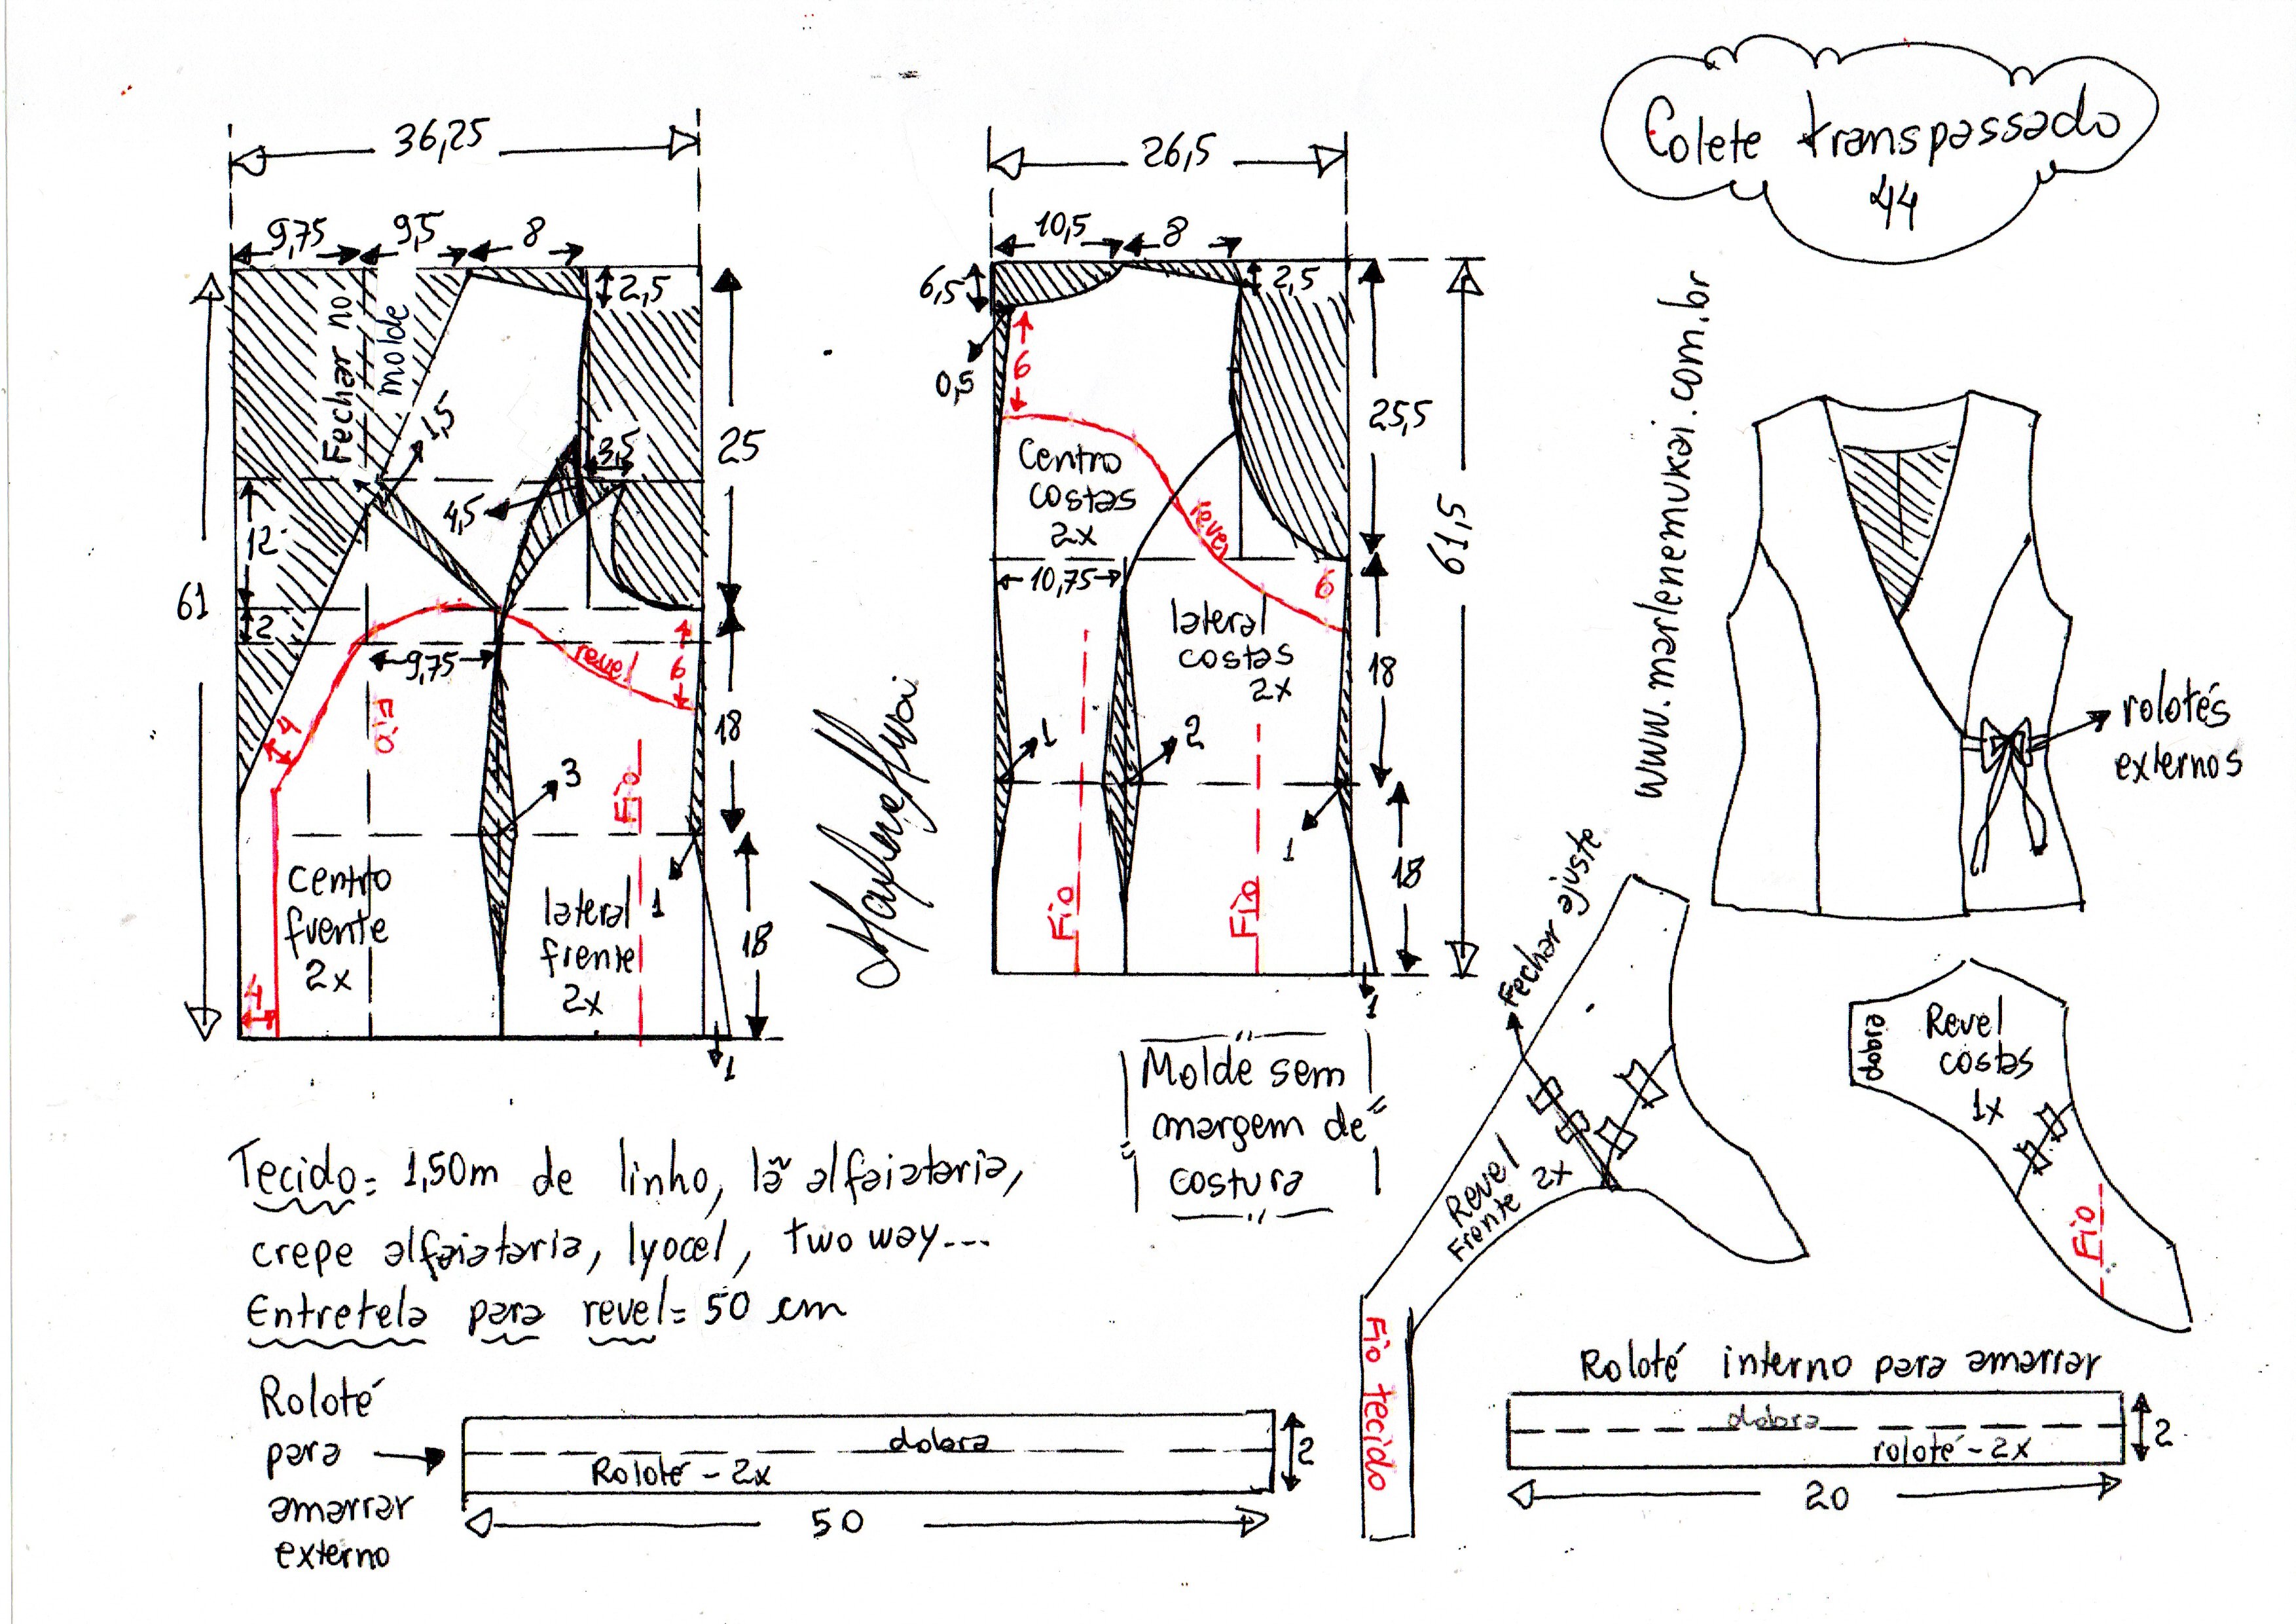 Colete transpassado
44
www.marlenemukai.com.br
36,25
9,75
9,5
8
2,5
Fechar no
molde
1,5
3,5
4,5
25
12
2
61
9,75
revel
6
4
Fio
18
3
Fio
centro
frente
2x
lateral
frente
2x
1
18
4
1
26,5
10,5
8
6,5
2,5
0,5
6
25,5
61,5
centro
costas
2x
revel
10,75
6
lateral
costas
2x
18
1
2
1
Fio
Fio
18
1
Marlene Mukai
rolotés
externos
Fechar ajuste
Revel
Frente 2x
Fio tecido
dobra
Revel
costas
1x
Fio
Molde sem
margem de
costura
Tecido= 1,50m de linho, lã alfaiataria,
crepe alfaiataria, lyocel, two way...
Entretela para revel= 50 cm
Roloté
para
amarrar
externo
dobra
Roloté - 2x
2
50
Roloté interno para amarrar
dobra
roloté - 2x
2
20